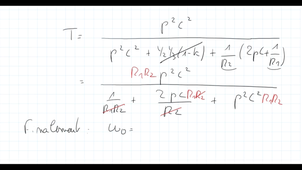 T = p²c² / (p²c² + Y₂Y₃(1-k) + 1/R₂ (2pc + 1/R₁))
= R₁R₂ p²c² / (1/R₁R₂ + 2pc R₁R₂/R₂ + p²c² R₁R₂)
Finalement. ω₀ =